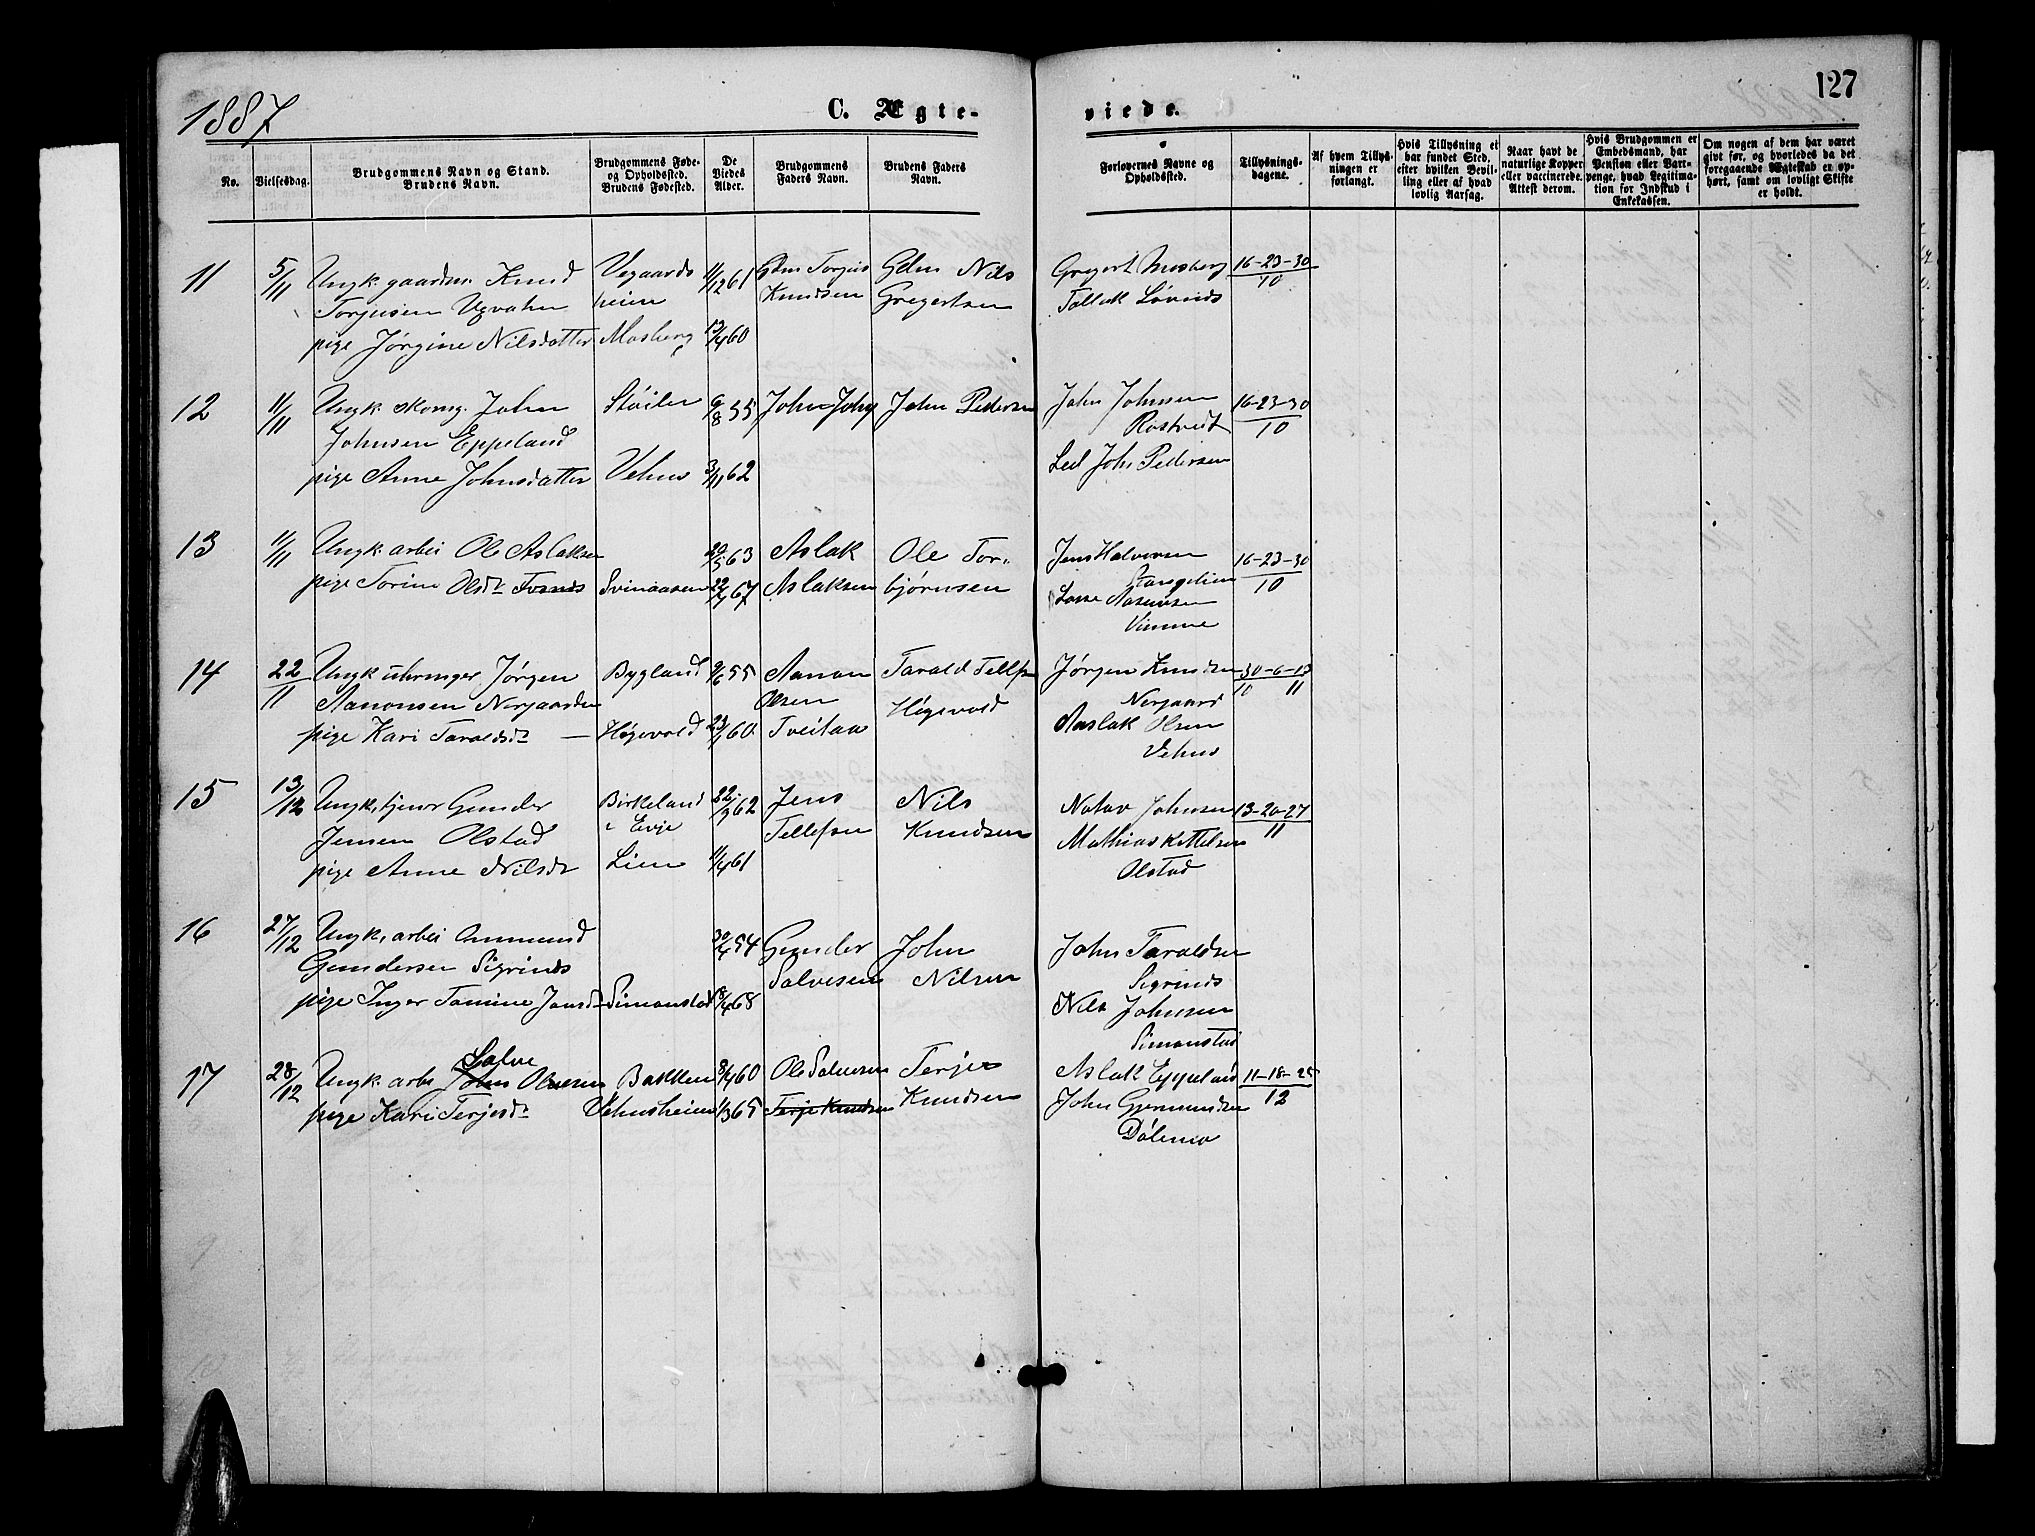 1887
C. Ægte-
viede.
127
No.
Vielsesdag.
Brudgommens Navn og Stand.
Brudens Navn.
Brudgommens Føde-
og Opholdssted.
Brudens Fødested.
De
Viedes
Alder.
Brudgommens
Faders Navn.
Brudens Faders
Navn.
Forlovernes Navne og
Opholdssted.
Tillysnings-
dagene.
Af hvem Tillys-
ningen er
forlangt.
Hvis Tillysning ei
har fundet Sted,
efter hvilken Bevil-
ling eller af hvad
lovlig Aarsag.
Naar havt de
naturlige Kopper
eller vaccinerede.
Attest derom.
Hvis Brudgommen er
Embedsmand, har
Pension eller Vart-
penge, hvad Legitima-
tion for Indskud i
Enkekassen.
Om nogen af dem har været
givt før, og hvorledes da det
foregaaende Ægteskab er op-
hørt, samt om lovligt Skifte
er holdt.
11 5/11 Ungk. gaardm. Knud Vegaards 11/12 61 Gdm Torjus Gdm Nils Gregert Mosberg 16-23-30
Torjusen Ugvatn heien Knudsen Gregertsen Tallak Løvnis 10
pige Jørgine Nilsdatter Mosberg 13/4 60
12 11/11 Ungk. skomg. John Støilen 6/8 55 John Johns John Pedersen John Johnsen 16-23-30
Johnsen Eppeland Rostveit 10
pige Anne Johnsdatter Vehus 3/11 62 Led John Pedersen
13 11/11 Ungk. arbei Ole Aslaksen 20/5 63 Aslak Ole Tor- Jens Halvorsen 16-23-30
pige Torine Olsdt Svinaasen 67 Aslaksen bjørnsen 10
Vimme
14 22/11 Ungk uhrmager Jørgen Bygland 9/6 55 Aanon Tarald Tellefs Jørgen Knudsen 30-6-13
Aanonsen Nergaarden Olsen Høgevold Nergaard 10 11
pige Kari Taraldsdt — Høgevold 60 Tveitaa Aaslak Olsen
Vehus
15 13/12 Ungk, tjener Gunder Birkeland 22/9 62 Jens Nils Notav Johnsen 13-20-27
Jensen Olstad i Evje Tellefsen Knudsen Mathias Kittelsen 11
pige Anne Nilsdt Lien 11/4 61 Olstad
16 27/12 Ungk, arbei Ommund 30/4 54 Gunder John John Taraldsen
Gundersen Sigrinds Salvesen Nilsen Sigrinds
pige Inger Tomine Jonsdt Simonstad 8/4 68 Nils Johnsen
Simonstad
Salve
17 28/12 Ungk. arbe John Olavesen Bakken 8/4 60 Ole Salvesen Terjes Aslak Eppeland 11-18-25
pige Kari Terjesdt Vehusheien 1/3 65 Terje Knudsen Knudsen John Gjermundsen 12
Dølemo